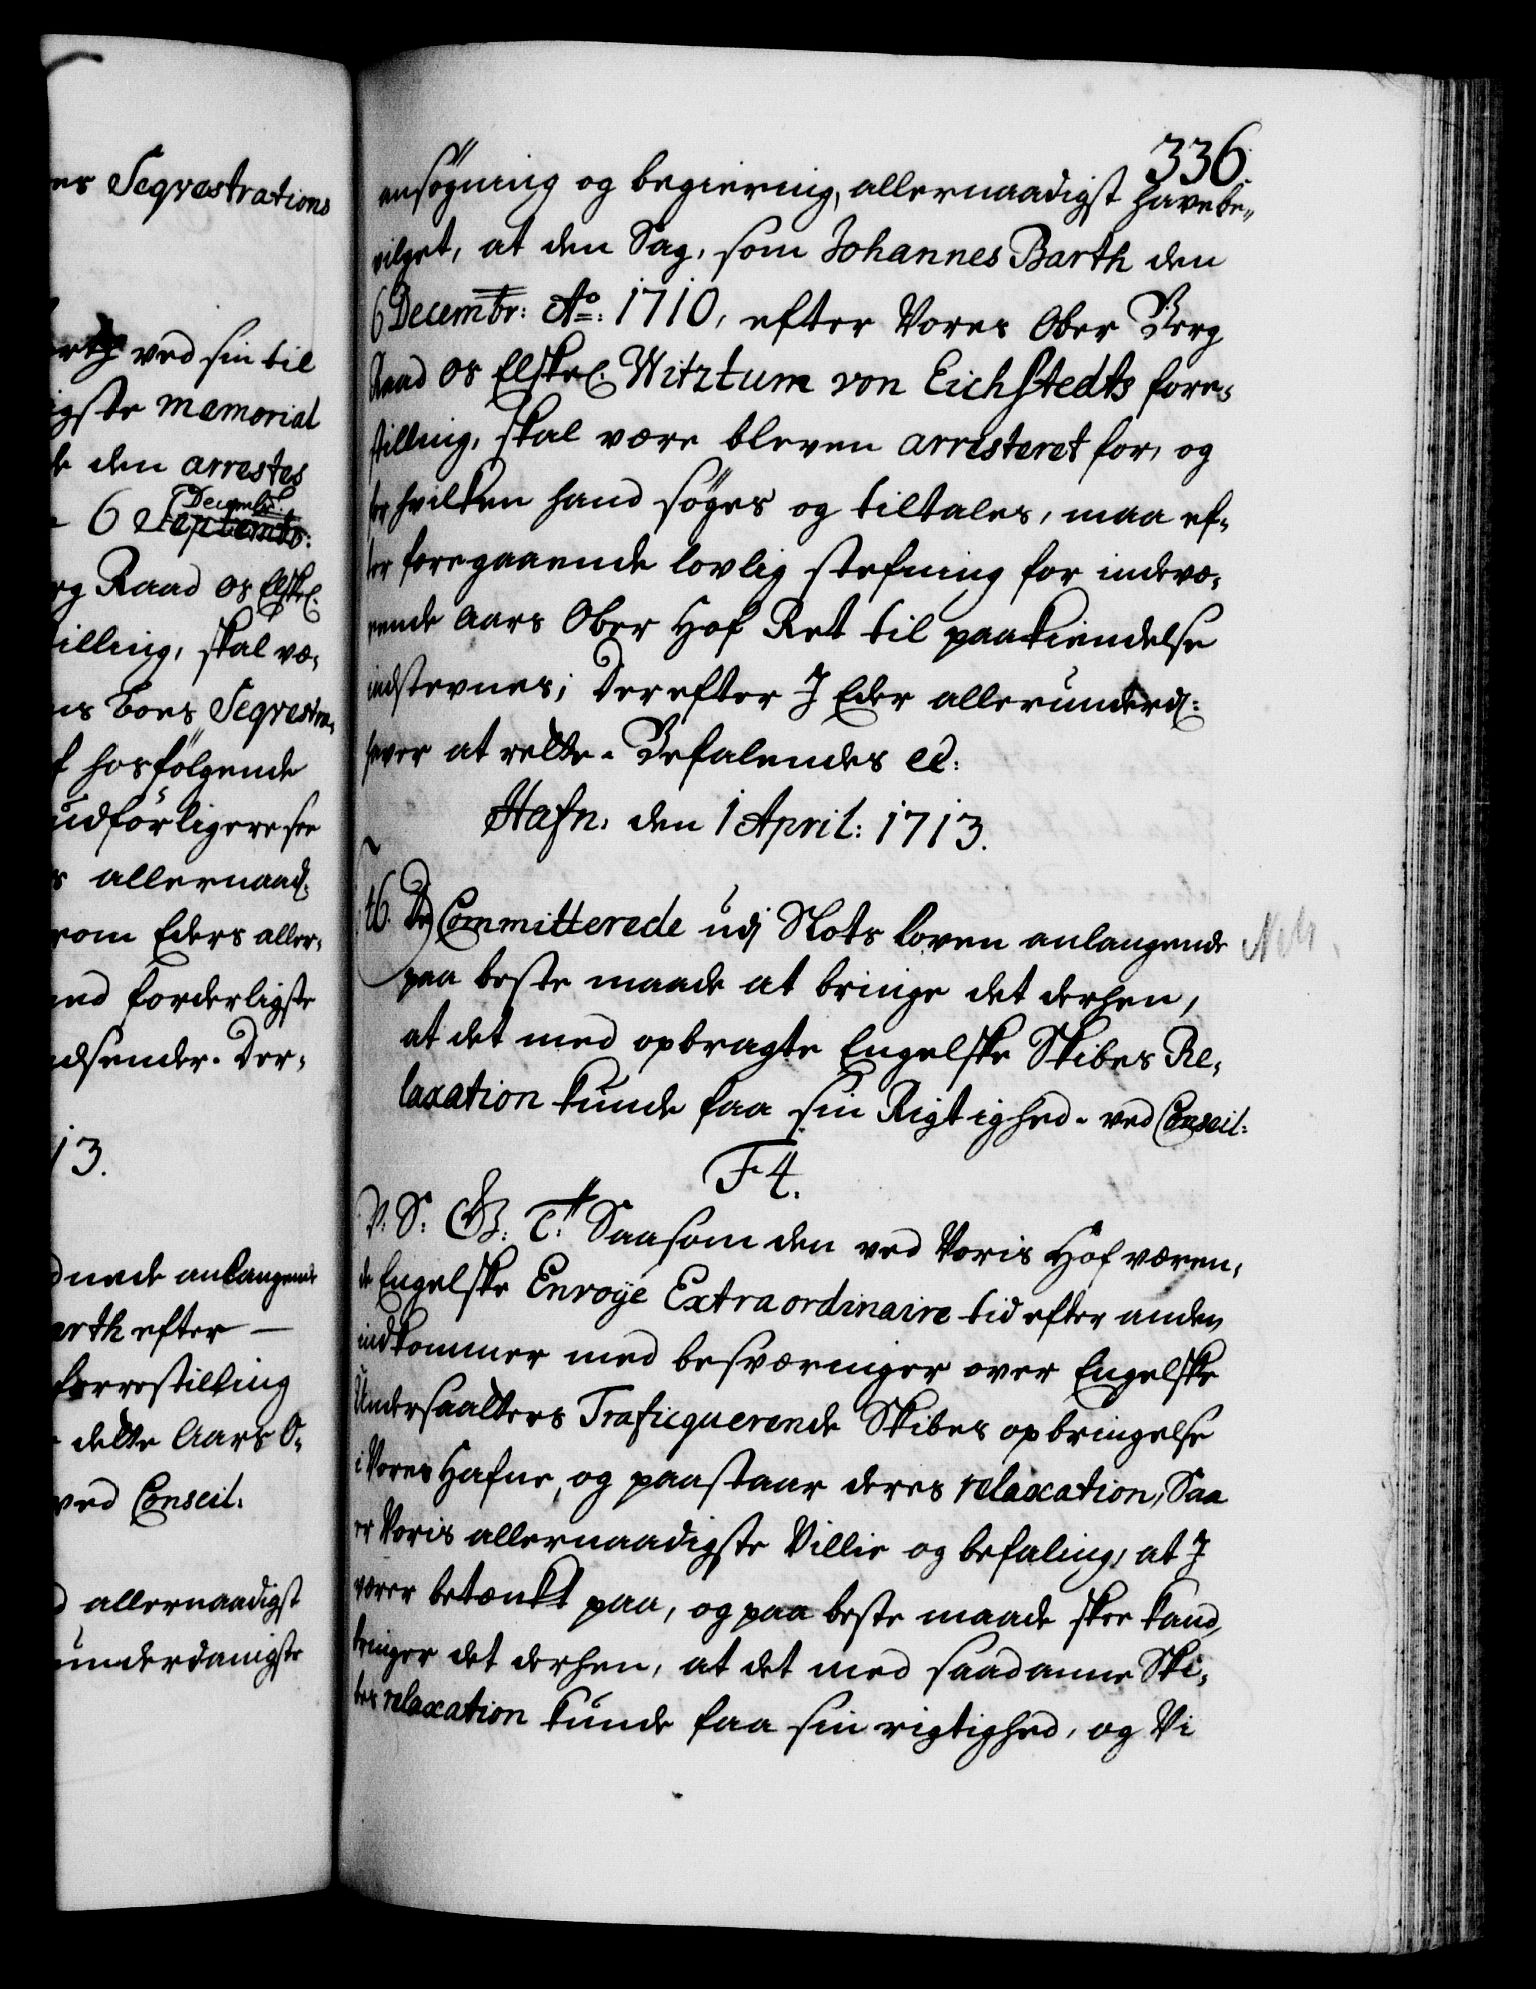 es Seqvestrations
ved sin til
igste memorial
den arrestes
Decembr:
6 Septembr:
rg Raad os Elskel.
illing, skal væ-
is boes Seqvestra-
f hosfølgende
udførligere see
s allernaad:
som Eders aller-
ned forderligste
dsender. Der-
13.
dnede anlangende
arth efter —
forrestilling
dette Aars O-
ved Conseil.
d allernaadigst
underdanigste
336.
ansøgning og begiering, allernaadigst have be-
vilget, at den Sag, som Johannes Barth den
6 Decembr: Ao: 1710, efter Vores Ober Berg
Raad os Elskel. Witztum von Eichstedts fore-
stilling, skal være bleven arresteret for, og
for hvilken hand søges og tiltales, maa ef-
ter foregaaende lovlig stefning for indevæ-
rende Aars Ober Hof Ret til paakiendelse
indstevnes; Derefter I Eder allerunderd:
haver at rette. Befalendes etc:
Hafn: den 1 April: 1713.
46. De Committerede udj Slots loven anlangende N.M.
paa beste maade at bringe det derhen,
at det med opbragte Engelske Skibes Re-
laxation kunde faa sin Rigtighed. ved Conseil:
F 4.
V. S. G. T. Saasom den ved Voris Hof væren-
de Engelske Envoÿe Extraordinaire tid efter anden
indkommer med besværinger over Engelske
Undersaatters Traficquerende Skibes opbringelse
i Vores Hafne, og paastaar deres relaxation; Saa
er Voris allernaadigste Villie og befaling, at I
værer betænkt paa, og paa beste maade skee kand,
bringer det derhen, at det med saadanne Ski-
bes relaxation kunde faa sin rigtighed, og Vi